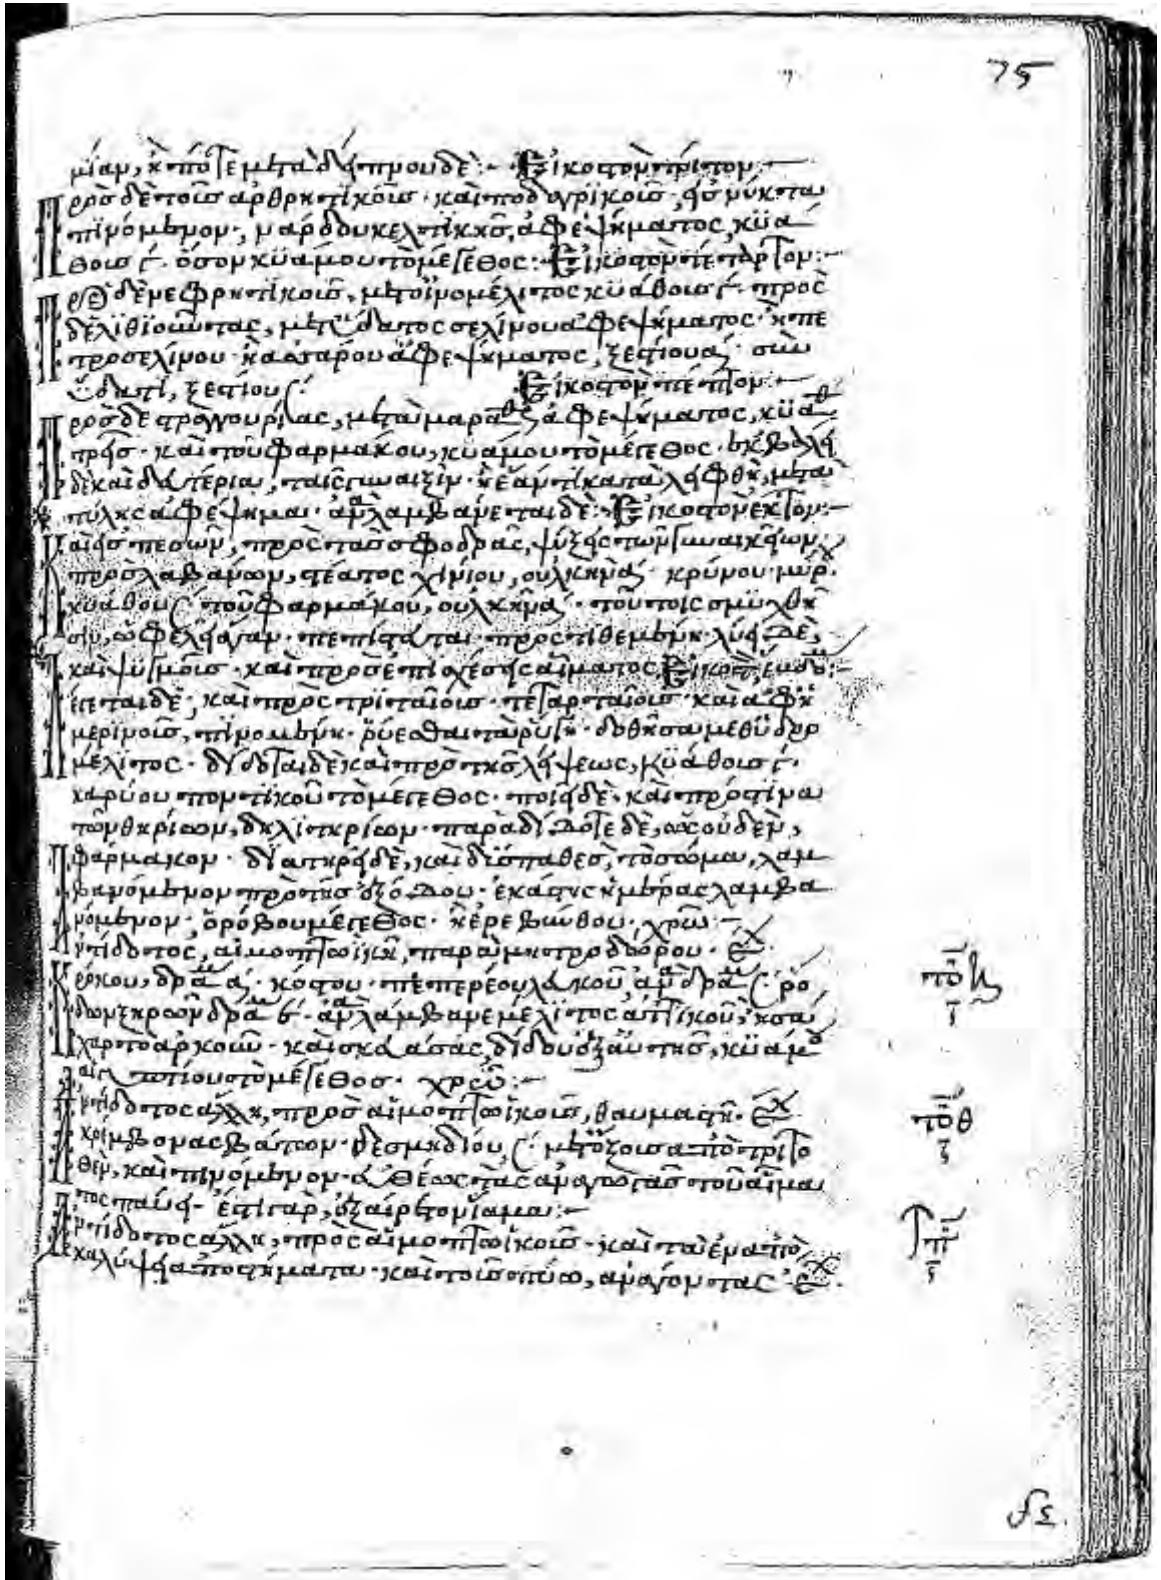 75
μίαν, ἢ πότε μετὰ δείπνου δὲ :- Εἰκοστὸν τρίτον :-
Πρὸς δὲ τοῖς ἀρθριτικοῖς · καὶ ποδαγρικοῖς, εἰς νύκτα
πινόμενον, νάρδου κελτικῆς, ἀφεψήματος, κυά
θοις γ. ὅσον κυάμου τὸ μέγεθος :- Εἰκοστὸν τέταρτον :-
Πρὸς δὲ νεφριτικοῖς, μετ οἰνομέλιτος κυάθοις γ. πρὸς
δὲ λιθιῶντας, μεθ ὕδατος σελίνου ἀφεψήματος · ἢ πε
τροσελίνου · ἢ ἀσάρου ἀφεψήματος, ξεστίου α · σὺν
ὕδατι, ξεστίου
Εἰκοστὸν πέμπτον :-
Πρὸς δὲ στραγγουρίας, μετὰ μαράθ ἀφεψήματος, κυάθ
τρεῖς · καὶ τοῦ φαρμάκου, κυάμου τὸ μέγεθος · ἐκβάλει
δὲ καὶ δευτέρια, ταῖς γυναιξὶν · ἢ ἐὰν τι καταλειφθῇ, μετὰ
πύλης ἀφέψημα · ἀναλαμβάνεται δὲ :- Εἰκοστὸν ἕκτον :-
Καὶ εἰς πεσὸν, πρὸς τὰς σφοδρὰς, ψύξεις τῶν γυναικείων,
προσλαβάνων, στέατος χινίου, ὁλκὴν α · κρίνου μύρ.
κυάθου τοῦ φαρμάκου, ὁλκὴν α · τοῦτοις σμιχθῇ
σιν, ὠφελεῖ ἄγαν · πεπίσται · προστιθεμένη · λύει δὲ,
καὶ ψυγμοῖς · καὶ πρὸς ἐπισχέσεις αἵματος Εἰκοστ, ἕνδομ :-
Λέγεται δὲ, καὶ πρὸς τριταίοις · τεταρταίοις · καὶ ἀμφη
μερινοῖς, πινομένη · ῥύεσθαι τὰ ῥίγη · δοθῆσα μεθ ὑδρο
μέλιτος · δίδοται δὲ καὶ πρὸ τῆς λήψεως, κυάθοις γ.
καρύου ποντικοῦ τὸ μέγεθος · ποιεῖ δὲ, καὶ πρός τινα
τῶν θηρίων, δηλητηρίων · παραδίδοται δὲ, ὡς οὐδὲν,
φάρμακον · διατηρεῖ δὲ, καὶ δύσπαθες, τὸ σῶμα, λαμ
βανόμενον πρὸ τῆς ἐξόδου · ἑκάστης ἡμέρας λαμβα
νόμενον, ὀρόβου μέγεθος · ἢ ἐρεβίνθου, χρῶ :-
Ἀντίδοτος, αἱμοπτωϊκὴ, παρὰ μητροδώρου · ἔχ.
Κρόκου, δραμ α · κόστου · πεπερέου λακοῦ ἀνα δραμ · ῥό
δων ξηρῶν δραμ · ἀναλάμβανε μέλιτος ἀττικοῦ, ἢ σα
χαρ τὸ ἀρκοῦν · καὶ σκευάσας, δίδου ἐξ αὐτῆς, κυάμο
αἰγυπτίου τὸ μέγεθος · χρῶ :-
Ἀντίδοτος ἄλλη, πρὸς αἱμοπτωϊκοῖς, θαυμαστὴ · ἔχ
Ἀκρίμβονας βάτων · δεσμηδίου, μετ ὄξους ἀποτριτο
θὲν, καὶ πινόμενον · εὐθέως τὰς ἀναγωγὰς τοῦ αἵμα
τος παύει · ἔστι γὰρ, ἐξαίρετον ἴαμα :-
Ἀντίδοτος ἄλλη, πρὸς αἱμοπτωϊκοῖς · καὶ τὰ ἐναπο
καλύψει ἀποστήματα · καὶ τοῖς πύω, ἀναγόντας · ἔχ.